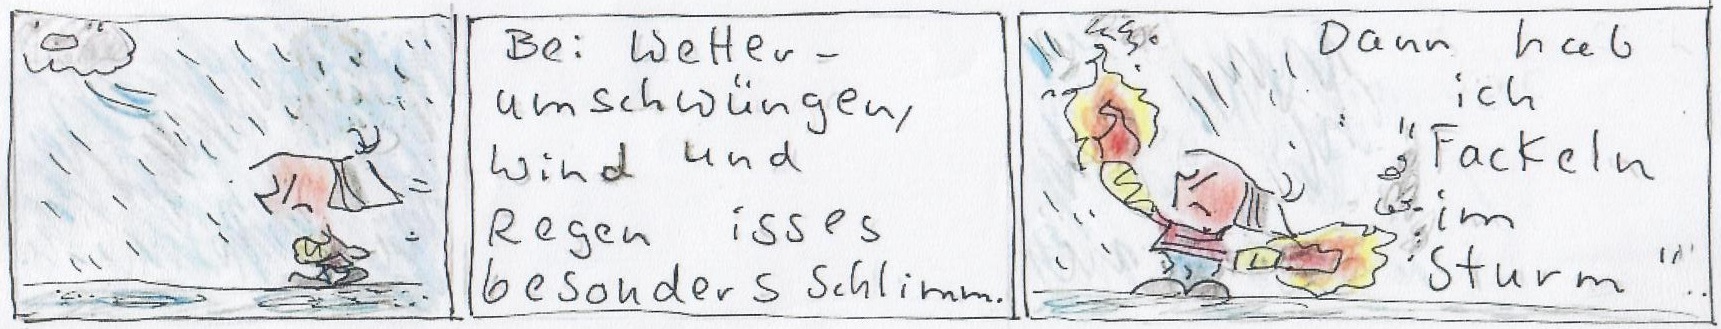 Bei Wetter-
umschwüngen,
Wind und
Regen isses
besonders schlimm.
Dann hab
ich
"Fackeln
im
Sturm"..